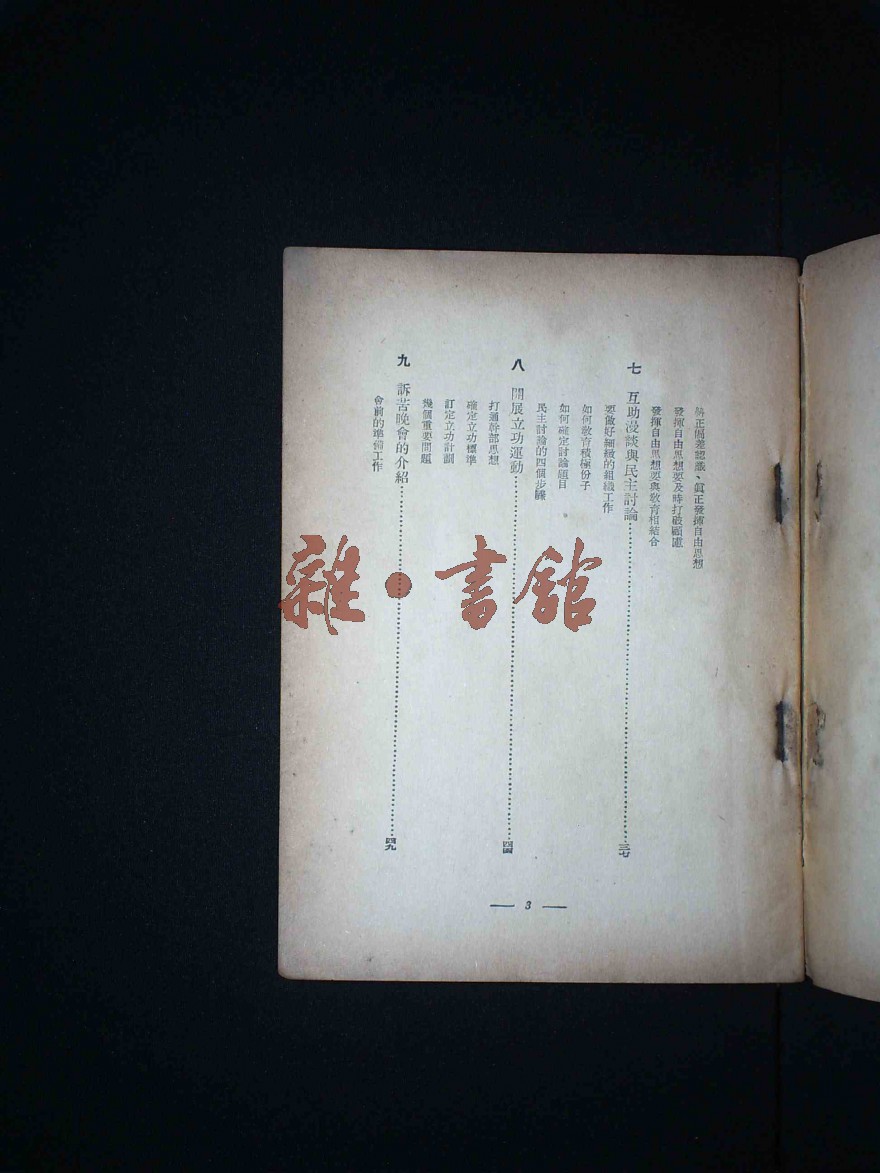 糾正偏差認識、眞正發揮自由思想
發揮自由思想要及時打破顧慮
發揮自由思想要與教育相結合
七 互助漫談與民主討論……三七
要做好細緻的組織工作
如何教育積極份子
如何確定討論題目
民主討論的四個步驟
八 開展立功運動……四四
打通幹部思想
確定立功標準
訂定立功計劃
幾個重要問題
九 訴苦晚會的介紹……四九
會前的準備工作
— 3 —
雜·書館